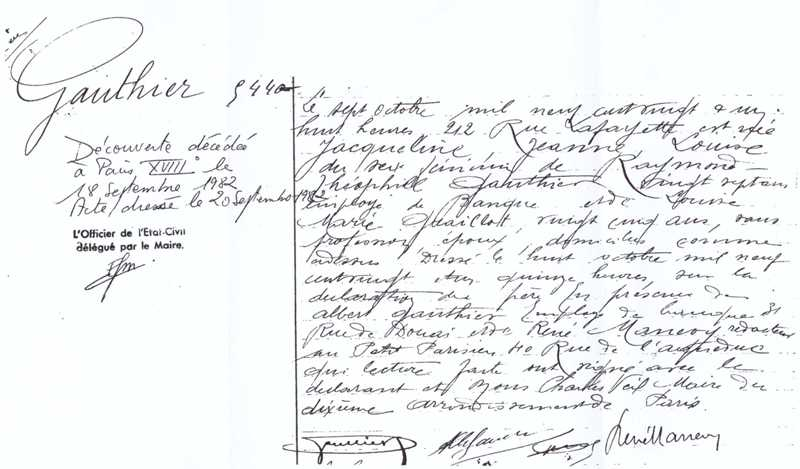 Gauthier 5440
Découverte décédée
à Paris XVIII° le
18 Septembre 1982
Acte dressé le 20 Septembre 1982
L'Officier de l'Etat-Civil
délégué par le Maire.
Le sept octobre mil neuf cent vingt & un
huit heures 212 Rue Lafayette est née
Jacqueline Jeanne Louise
du sexe féminin de Raymond
Théophile Gauthier vingt sept ans
Employé de Banque et de Louise
Marie Guaillot, vingt cinq ans, sans
profession époux, domiciliés comme
dessus Dressé le huit octobre mil neuf
cent vingt & un quinze heures sur la
déclaration du père En présence de
albert Gauthier Employé de 31
Rue de Douai et de René Manevy rédacteur
au Petit Parisien 40 Rue de l'aqueduc
qui lecture faite ont signé avec le
déclarant et Nous Charles Maire du
dixième arrondissement de Paris.
Gauthier René Manevy